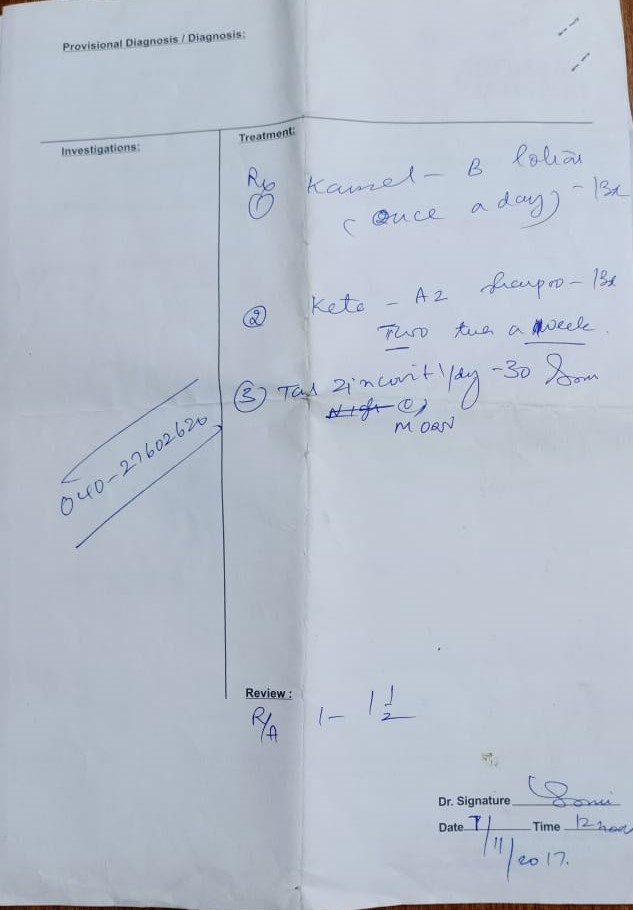 Provisional Diagnosis / Diagnosis:
Investigations:
Treatment:
Rx
① - B lotion
(Once a day) -
② Keto - AZ
Two a week.
③ Tab Zincovit 1/day - 30
MORN
040-27602620
Review:
R/A 1 - 1 1/2
Dr. Signature
Date 7/11/2017. Time 12 noon